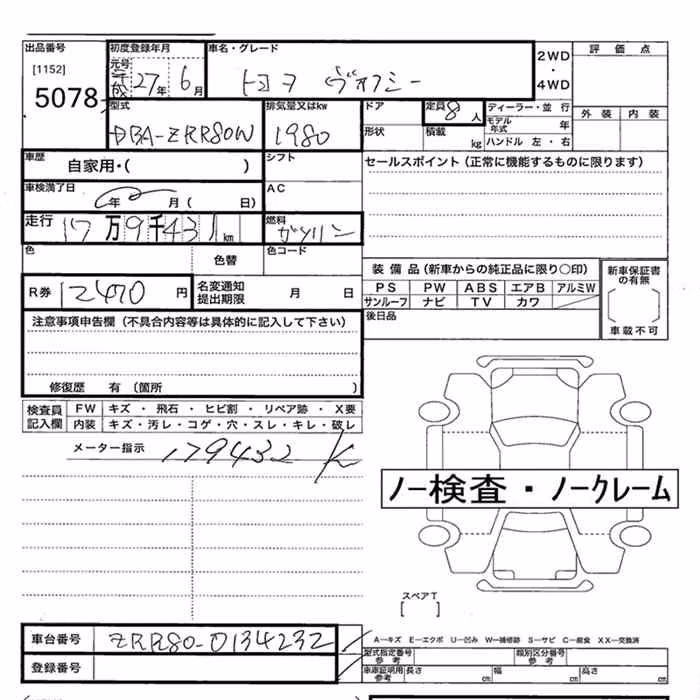 出品番号 初度登録年月 車名・グレード 2WD・4WD 評価点
[1152] 元号 平成 27年 6月 トヨタ ヴォクシー
5078
型式 排気量又はkw ドア 定員 8人 ディーラー・並行 外装 内装
DBA-ZRR80W 1980 形状 積載 kg モデル年式 年
ハンドル 左・右
車歴 自家用・( ) シフト セールスポイント（正常に機能するものに限ります）
車検満了日 年 月 ( 日) AC
走行 17万9千43 km 燃料 ガソリン
色 色替 色コード
装備品（新車からの純正品に限り○印） 新車保証書の有無
R券 12470 円 名変通知提出期限 月 日 PS PW ABS エアB アルミW
サンルーフ ナビ TV カワ
注意事項申告欄（不具合内容等は具体的に記入して下さい） 後日品 車載不可
修復歴 有（箇所 ）
検査員記入欄 FW キズ・飛石・ヒビ割・リペア跡・X要
内装 キズ・汚レ・コゲ・穴・スレ・キレ・破レ
メーター指示 179432 K
ノー検査・ノークレーム
スペアT
[ ]
車台番号 ZRR80-0134232
A―キズ E―エクボ U―凹み W―補修跡 S―サビ C―腐食 XX―交換済
登録番号 型式指定番号 参考 類別区分番号 参考
車庫証明用 参考 長さ cm 幅 cm 高さ cm